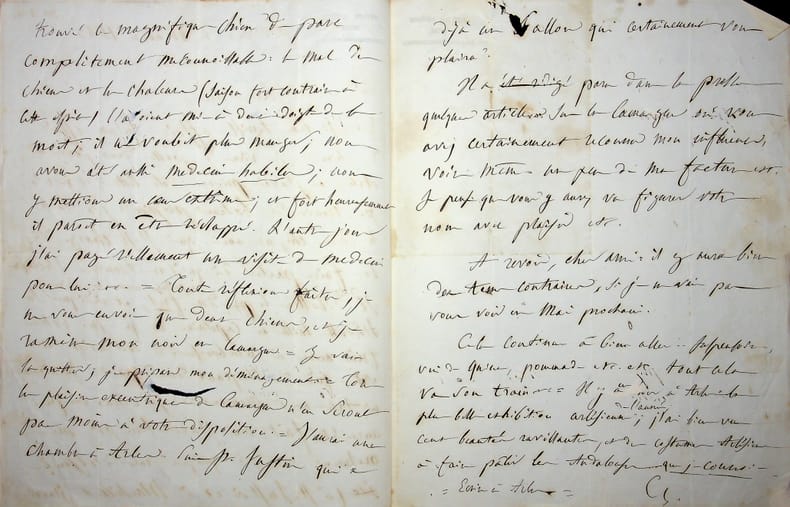 trouvé le magnifique chien de parc
complètement méconnaissable : le mal de
chien et la chaleur (saison fort contraire à
cette espèce) l'avoient mis à deux doigts de la
mort ; il ne vouloit plus manger ; nous
avons été aussi médecins habiles ; nous
y mettions un cœur extrême ; et fort heureusement
il paroit en être réchappé. L'autre jour
j'ai payé réellement une visite de médecin
pour lui = Toute réflexion faite, je
ne vous envoie que deux chiens, et je
ramène mon noir en Camargue = Je vais
la quitter ; je prépare mon déménagement = Tous
les plaisirs excentriques de Camargue n'en seront
pas moins à votre disposition = J'aurai une
chambre à Arles. St. Justin qui a
déjà un ballon qui certainement vous
plaira.
Il a paru dans la presse
quelques articles sur la Camargue où vous
avez certainement reconnu mon influence,
voir même un peu de ma facture etc.
Je pense que vous y aurez vu figurer votre
nom avec plaisir etc.
A revoir, cher ami : il y aura bien
des contraires, si je ne vais pas
vous voir en Mai prochain.
Cela continue à bien aller = suspensoir,
pommade etc. etc. tout cela
va son train = Il y a à Arles la
plus belle exhibition arlésienne ; j'ai bien vu
cent beautés ravissantes, et des costumes
à faire pâlir les Andalouses que je connois =
= Ecrire à Arles =